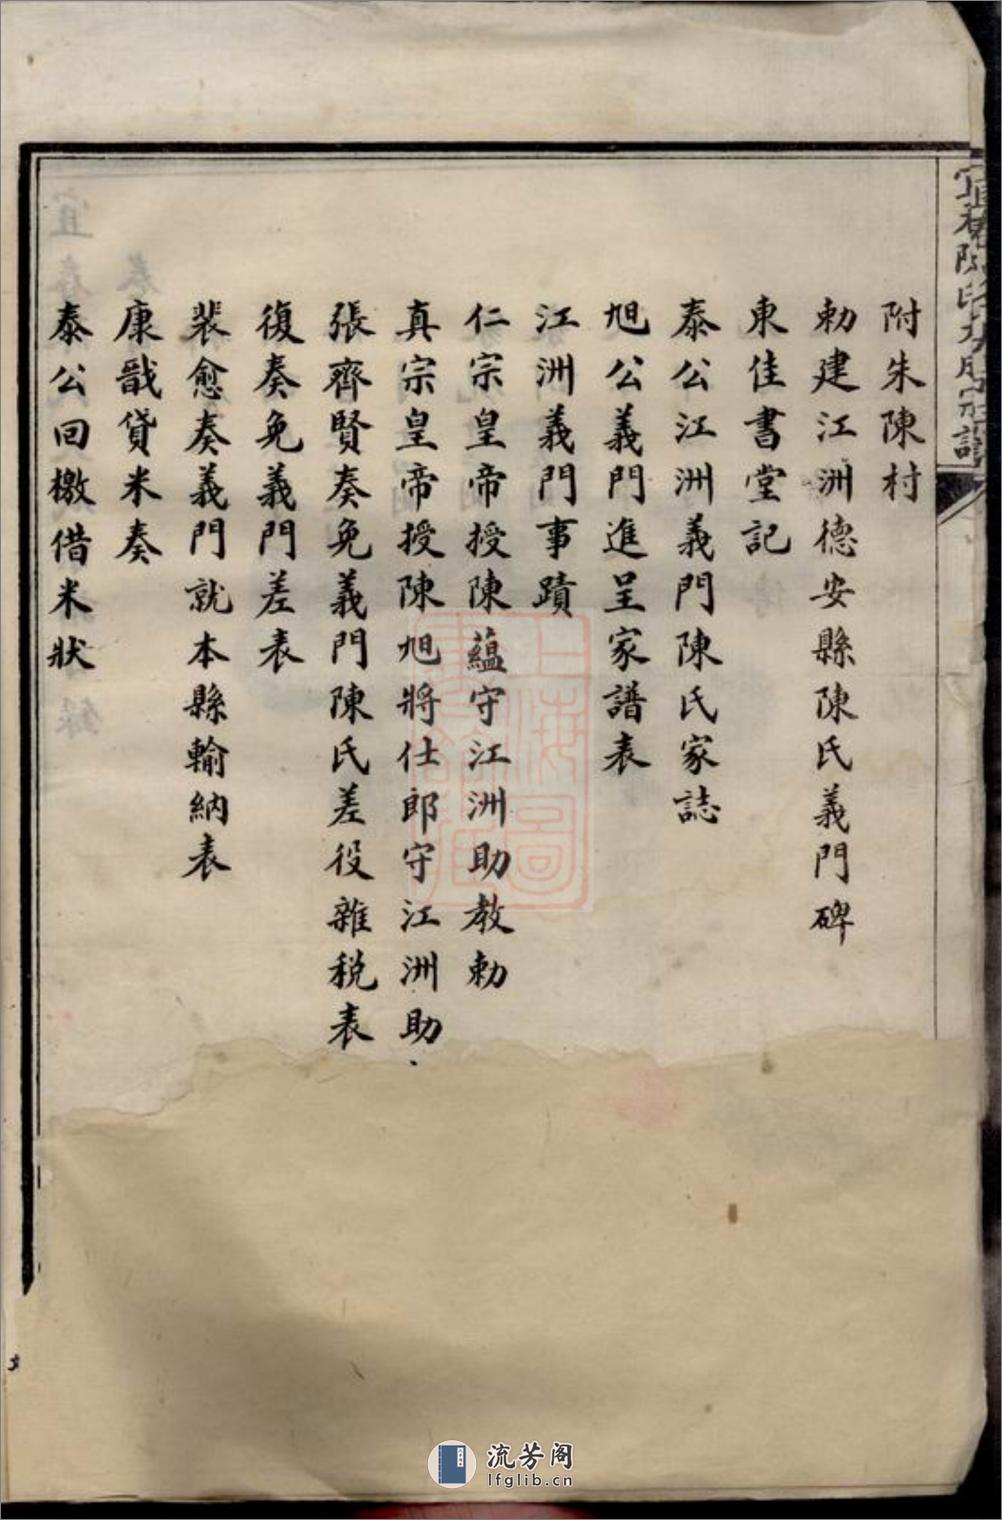 附朱陳村
勅建江洲德安縣陳氏義門碑
東佳書堂記
泰公江洲義門陳氏家誌
旭公義門進呈家譜表
江洲義門事蹟
仁宗皇帝授陳蘊守江洲助教勅
真宗皇帝授陳旭將仕郎守江洲助
張齊賢奏免義門陳氏差役雜税表
復奏免義門差表
裴愈奏義門就本縣輸納表
康戩貸米奏
泰公回檄借米狀
流芳阁
lfglib.cn